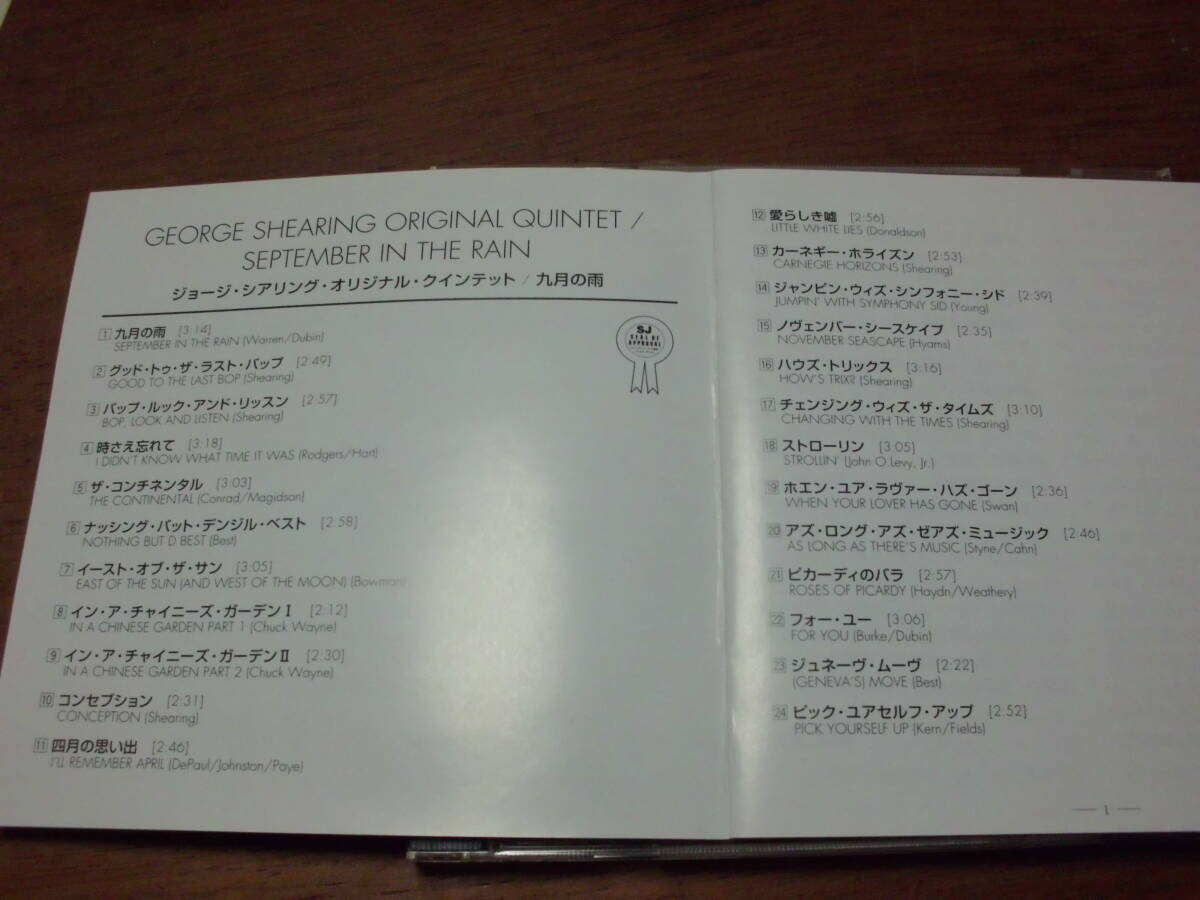 GEORGE SHEARING ORIGINAL QUINTET /
SEPTEMBER IN THE RAIN
ジョージ・シアリング・オリジナル・クインテット / 九月の雨
SJ
SEAL OF
APPROVAL
1 九月の雨 [3:14]
SEPTEMBER IN THE RAIN (Warren/Dubin)
2 グッド・トゥ・ザ・ラスト・バップ [2:49]
GOOD TO THE LAST BOP (Shearing)
3 バップ・ルック・アンド・リッスン [2:57]
BOP, LOOK AND LISTEN (Shearing)
4 時さえ忘れて [3:18]
I DIDN'T KNOW WHAT TIME IT WAS (Rodgers/Hart)
5 ザ・コンチネンタル [3:03]
THE CONTINENTAL (Conrad/Magidson)
6 ナッシング・バット・デンジル・ベスト [2:58]
NOTHING BUT D BEST (Best)
7 イースト・オブ・ザ・サン [3:05]
EAST OF THE SUN (AND WEST OF THE MOON) (Bowman)
8 イン・ア・チャイニーズ・ガーデンⅠ [2:12]
IN A CHINESE GARDEN PART 1 (Chuck Wayne)
9 イン・ア・チャイニーズ・ガーデンⅡ [2:30]
IN A CHINESE GARDEN PART 2 (Chuck Wayne)
10 コンセプション [2:31]
CONCEPTION (Shearing)
11 四月の思い出 [2:46]
I'LL REMEMBER APRIL (DePaul/Johnston/Paye)
12 愛らしき嘘 [2:56]
LITTLE WHITE LIES (Donaldson)
13 カーネギー・ホライズン [2:53]
CARNEGIE HORIZONS (Shearing)
14 ジャンピン・ウィズ・シンフォニー・シド [2:39]
JUMPIN' WITH SYMPHONY SID (Young)
15 ノヴェンバー・シースケイプ [2:35]
NOVEMBER SEASCAPE (Hyams)
16 ハウズ・トリックス [3:16]
HOW'S TRIX? (Shearing)
17 チェンジング・ウィズ・ザ・タイムズ [3:10]
CHANGING WITH THE TIMES (Shearing)
18 ストローリン [3:05]
STROLLIN' (John O.Levy, Jr.)
19 ホエン・ユア・ラヴァー・ハズ・ゴーン [2:36]
WHEN YOUR LOVER HAS GONE (Swan)
20 アズ・ロング・アズ・ゼアズ・ミュージック [2:46]
AS LONG AS THERE'S MUSIC (Styne/Cahn)
21 ピカーディのバラ [2:57]
ROSES OF PICARDY (Haydn/Weathery)
22 フォー・ユー [3:06]
FOR YOU (Burke/Dubin)
23 ジュネーヴ・ムーヴ [2:22]
(GENEVA'S) MOVE (Best)
24 ピック・ユアセルフ・アップ [2:52]
PICK YOURSELF UP (Kern/Fields)
— 1 —